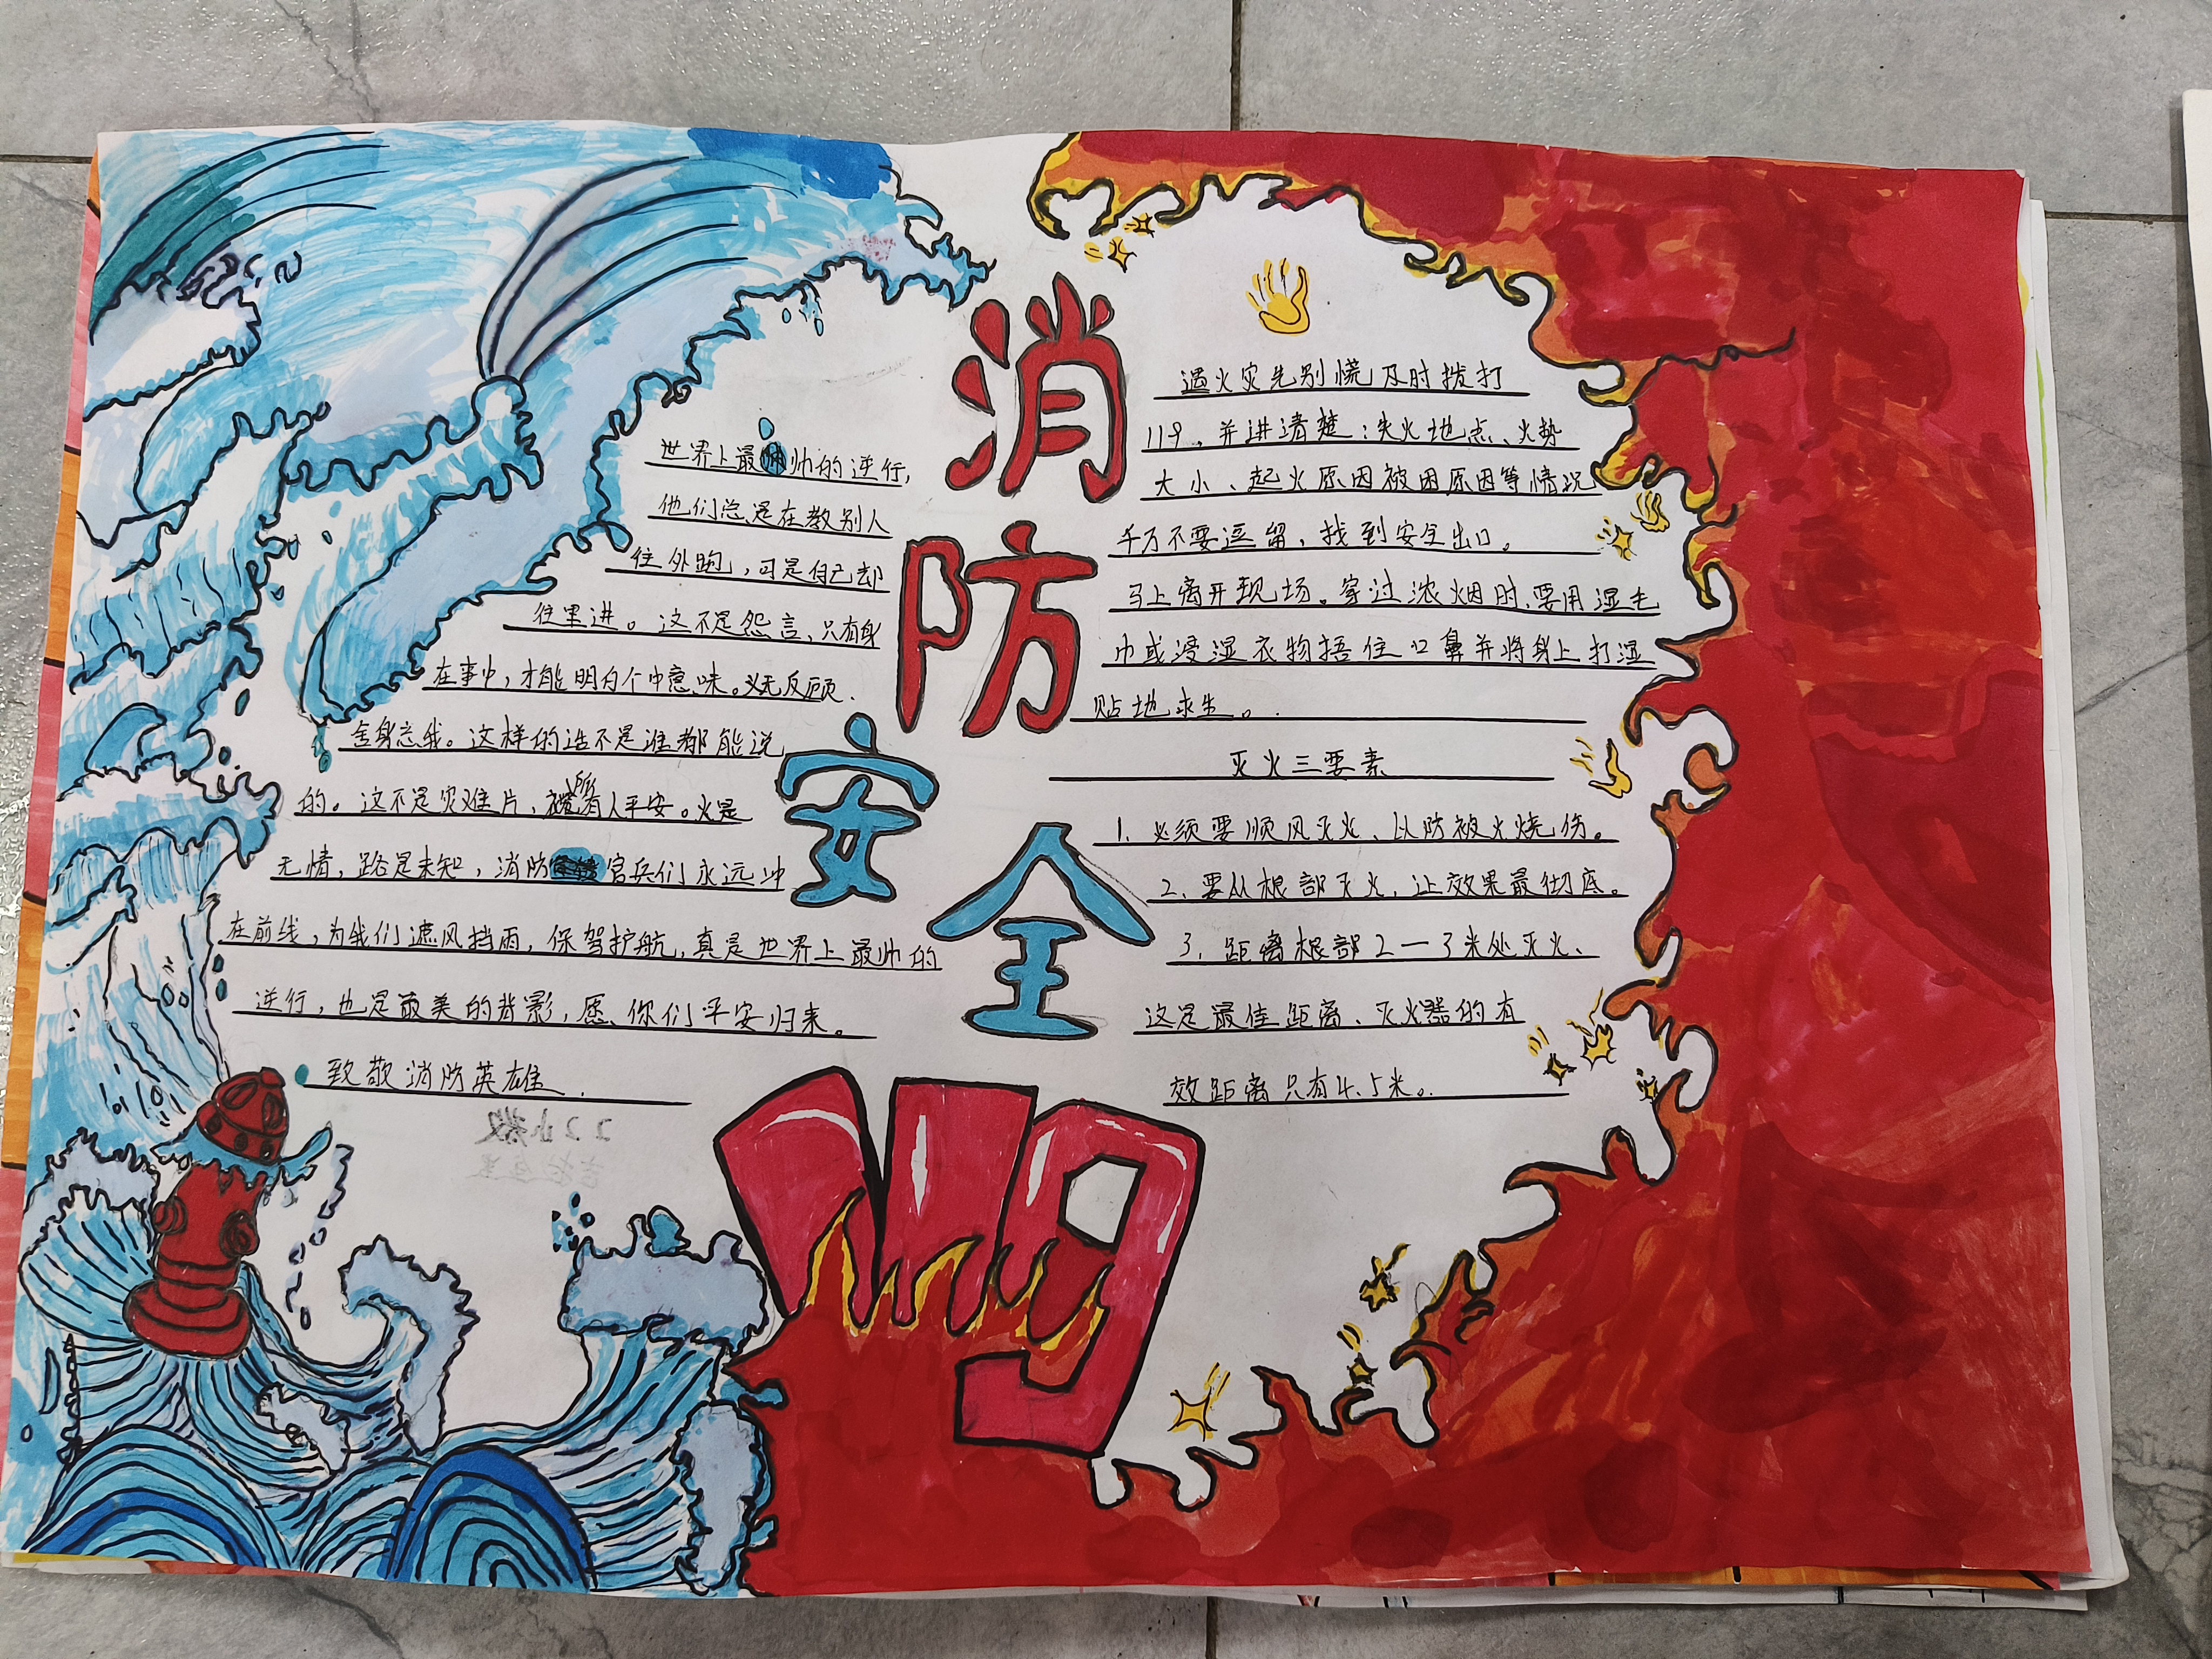 消
防
安
全
世界上最帅的逆行,
他们总是在救别人
往外跑，可是自己却
往里进。这不是怨言、只有身
在事中，才能明白个中意味。义无反顾、
舍身忘我。这样的选不是谁都能说
的。这不是灾难片、祝愿所有人平安。火是
无情，路是未知，消防官兵们永远冲
在前线，为我们遮风挡雨，保驾护航，真是世界上最帅的
逆行，也是最美的背影，愿你们平安归来。
致敬消防英雄
遇火灾先别慌及时拨打
119、并讲清楚：失火地点、火势
大小、起火原因被困原因等情况
千万不要逗留，找到安全出口。
马上离开现场。穿过浓烟时，要用湿毛
巾或浸湿衣物捂住口鼻并将身上打湿
贴地求生。
灭火三要素
1. 必须要顺风灭火、以防被火烧伤。
2、要从根部灭火，让效果最彻底。
3、距离根部2一3米处灭火、
这是最佳距离、灭火器的有
效距离只有4.5米。
119